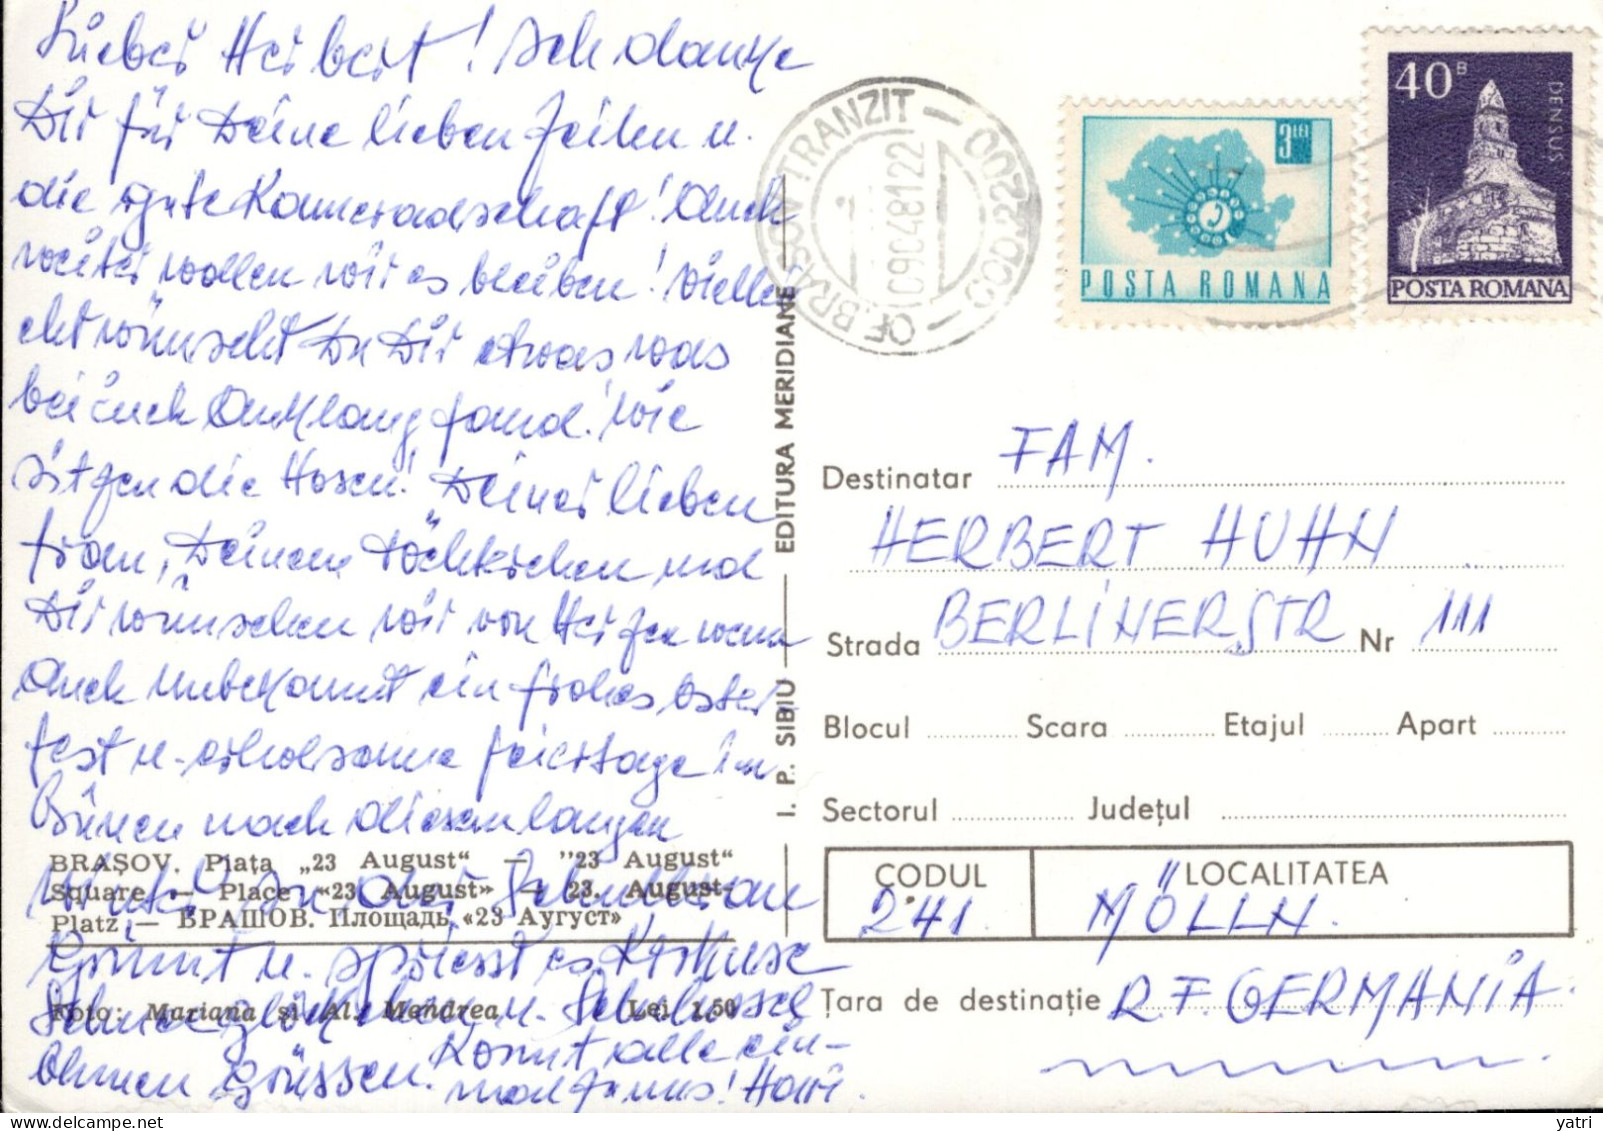 Lieber Herbert! Ich danke
Dir für Deine lieben Zeilen u.
die gute Kameradschaft! Auch
weiter wollen wir es bleiben! Viellei
cht wünscht Du Dir etwas was
bei Euch Anklang fand! Wie
sitzen die Hosen! Deiner lieben
Frau, Deinem Töchterchen und
Dir wünschen wir von Herzen wenn
auch Unbekannt ein frohes Oster-
fest u. erholsame Feiertage! Im
Bünen nach diesem langen
Winter In der
Grünt u. spriesst es. Krokusse
Schneeglökchen, u. Schlüssel
blumen Grüssen. Kommt alle ein-
mal zu uns! Harri
BRAȘOV. Piața „23 August“ — "23 August"
Square — Place «23 August» — 23. August-
Platz — БРАШОВ. Площадь «23 Аугуст»
Foto: Mariana și Al. Mendrea Lei 1,50
I. P. SIBIU — EDITURA MERIDIANE
OF. BRAȘOV TRANZIT — COD 2200 —
09.04.81.22
3 LEI
POSTA ROMANA
40 B
DENSUS
POSTA ROMANA
Destinatar FAM.
HERBERT HUHN
Strada BERLINERSTR Nr 111
Blocul Scara Etajul Apart
Sectorul Județul
CODUL LOCALITATEA
241 MÖLLN.
Țara de destinație R.F. GERMANIA.
yatri